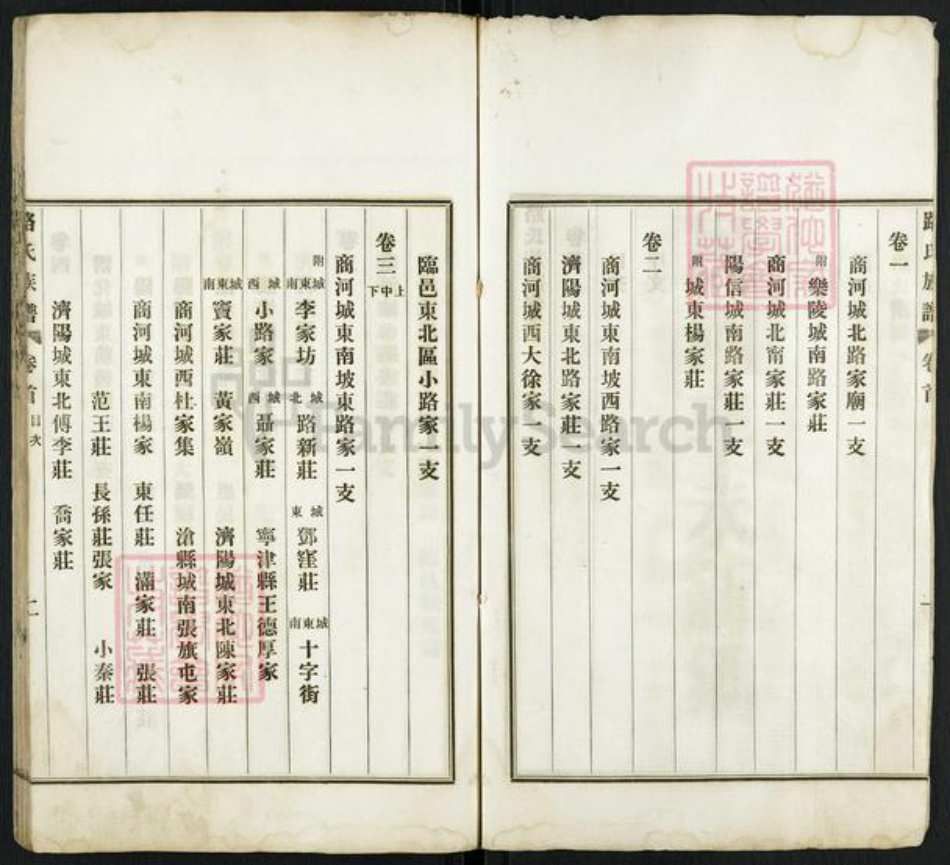 路氏族譜 卷首 一
卷一
商河城北路家廟一支
附 樂陵城南路家莊
商河城北甯家莊一支
陽信城南路家莊一支
附 城東楊家莊
卷二
商河城東南坡西路家一支
濟陽城東北路家莊一支
商河城西大徐家一支
臨邑東北區小路家一支
卷三 上中下
商河城東南坡東路家一支
附 城東南 李家坊 城北 路新莊 城東 鄧窪莊 城東南 十字街
城西 小路家 城西 聶家莊 寧津縣王德厚家
城東南 竇家莊 黃家嶺 濟陽城東北陳家莊
商河城西杜家集 滄縣城南張旗屯家
商河城東南楊家 東任莊 滿家莊 張莊
范王莊 長孫莊張家 小秦莊
濟陽城東北傅李莊 喬家莊
路氏族譜 卷首 目次 二
FamilySearch